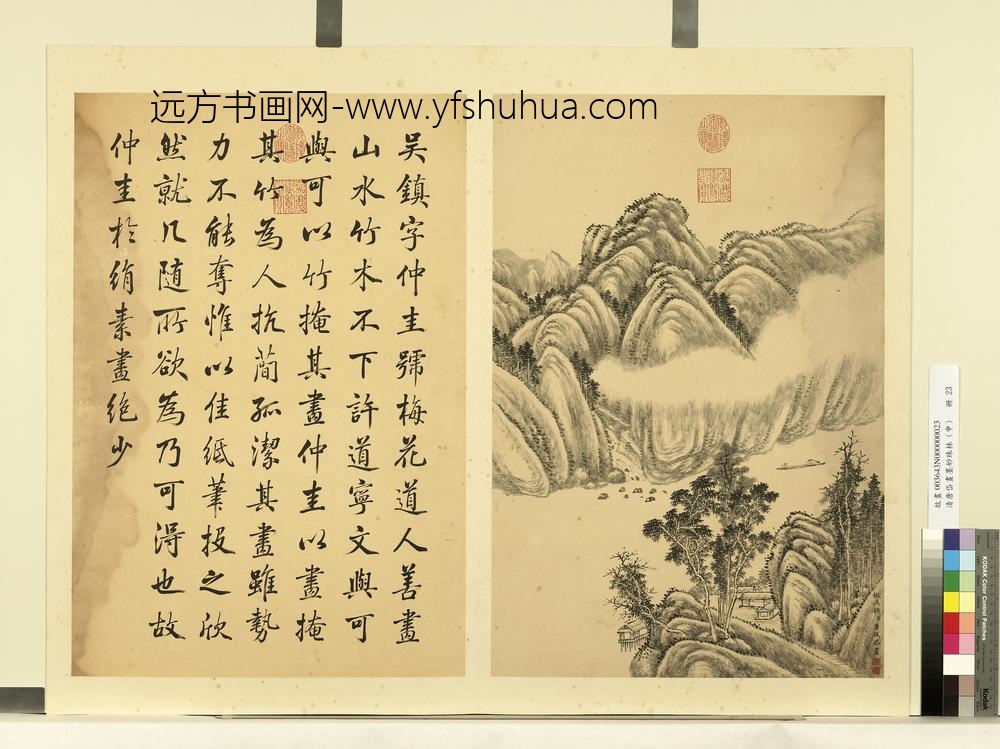 远方书画网-www.yfshuhua.com
吴鎮字仲圭號梅花道人善畫
山水竹木不下許道寧文與可
與可以竹掩其畫仲圭以畫掩
其竹為人抗簡孤潔其畫雖勢
力不能奪惟以佳紙筆投之欣
然就几随所欲為乃可得也故
仲圭於絹素畫絶少
故畫003643N000000023 冊 23
清唐岱畫墨妙珠林（申）
KODAK Color Control Patches
Kodak